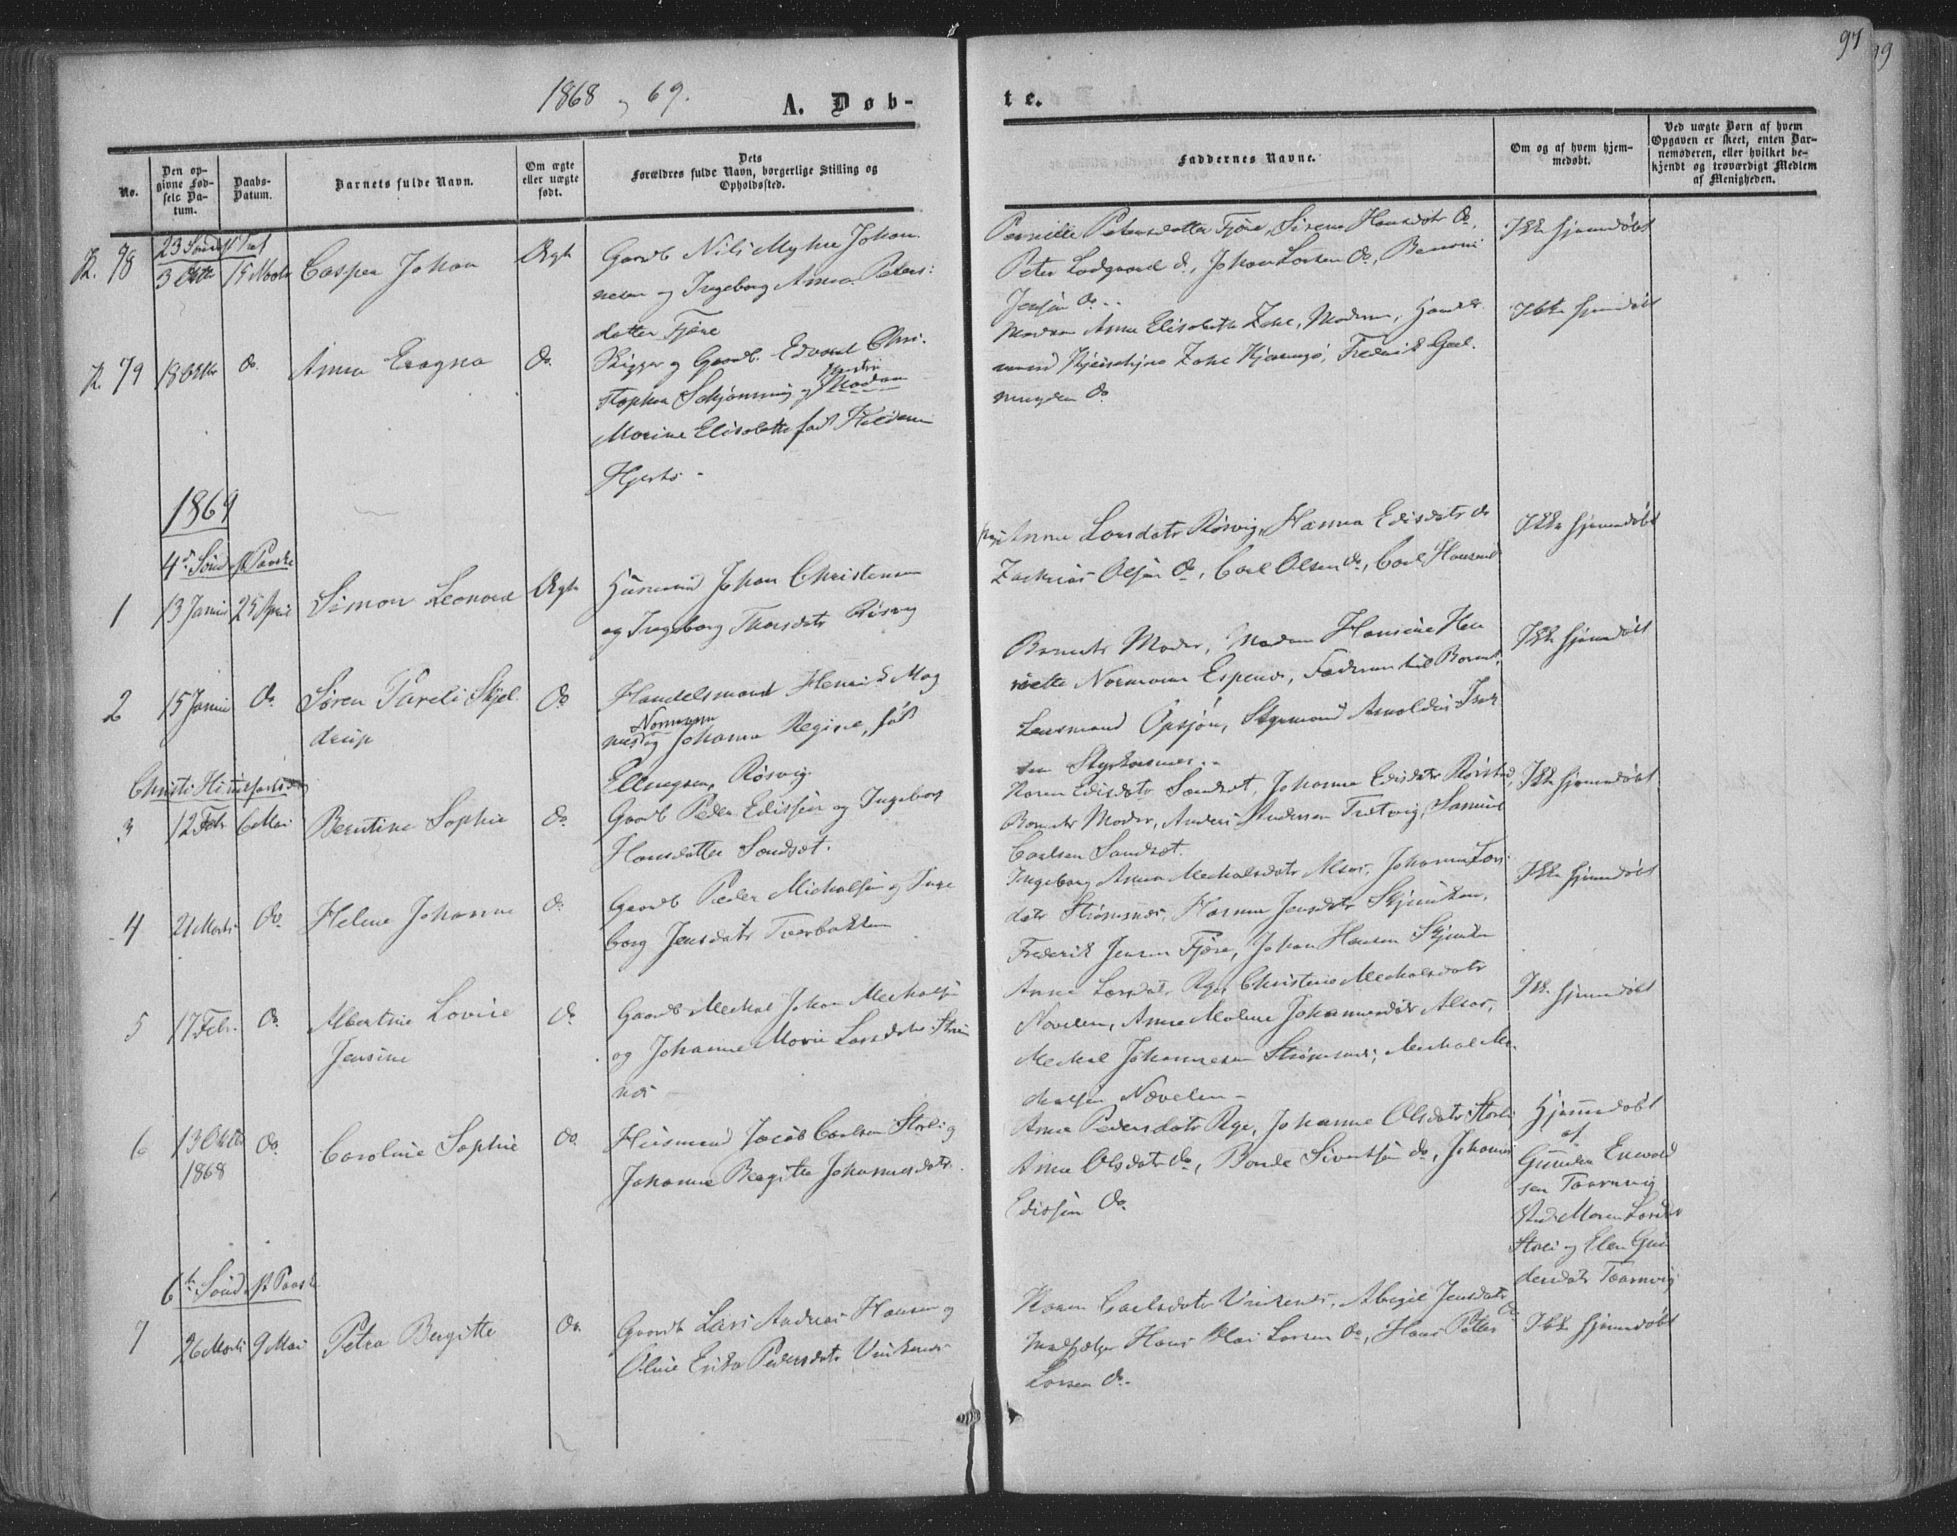 97
1868 69.
A. Døb-
te.
No.
Den op-
givne Fød-
sels Da-
tum.
Daabs-
Datum.
Barnets fulde Navn.
Om ægte
eller uægte
født.
Dets
Forældres fulde Navn, borgerlige Stilling og
Opholdssted.
Faddernes Navne.
Om og af hvem hjem-
medøbt.
Ved uægte Børn af hvem
Opgaven er skeet, enten Bar-
nemoderen, eller hvilket be-
kjendt og troværdigt Medlem
af Menigheden.
78
3 Oktr
15 Novbr
Casper Johan
Ægte
Gaardb Nils Myhre Johan
nesen og Ingeborg Anna Peters:
datter Fjære
Pernille Petersdatter Fjære, Sirena Hansdatr do,
Peter Lodgaard do, Johan Larsen do, Benoni
Jensen do
Ikke hjemdøbt
79
18 Oktr
do
Anna Eragna
do.
Skipper og Gaardb. Edvard Chri-
stopher Schjønning og Madam
Marine Elisabeth fød
Hjertø
Madam Anna Elisabeth Zahl, Moderen, Handels
mand Zahl Kjærringø, Frederik
do
Ikke hjemdøbt
1869
4de Sønd. p. Paaske
1
13 Januar
25 April
Simon Leonard
Ægte
Husmand Johan Christensen
og Ingeborg Thorsdatr Røsvig
Anne Larsdatr Røsvig, Hanna Edisdatr do
Zacharias Olsen do, Carl Olsen do, Carl
Ikke hjemmedøbt
2
15 Januar
do
Søren Pareli Skjel
derup
do
Handelsmand Henrik Mag
nus Normann og Johanna Regine, født
Ellingsen, Røsvig
Barnets Moder, Madam Hansine Hen
riette Normann Espenes, Faderen til Barnet,
Lensmand Opsjøn, Styrmand Arnoldus
Styrkesnes
Ikke hjemmedøbt
Christi Himmelfartsdag
3
12 Febr
6 Mai
Berntine Sophie
do.
Gaardb Peder Edissen og Ingeborg
Hansdatter Sandset.
Karen Edisdatr Sandset, Johanna Edisdatr Rørstad,
Barnets Moder, Anders Andersen Tretvig, Samuel
Carlsen Sandset.
Ikke hjemmedøbt
4
21 Marts
do
Helene Johanne
do
Gaardb Peder Michalsen og Inge
borg Jensdatr Tverbakken
Ingeborg Anna Mechalsdatr Alsos, Johanna Lars
datr Strømsnes, Hanna Jensdatr
Frederik Jensen Fjære, Johan Hansen
Ikke hjemmedøbt
5
17 Febr.
do
Albertine Lovise
Jensine
do
Gaardb Mechal Johan Mechalsen
og Johanne Marie Larsdatr Strøms
nes
Anne Larsdatr Røe, Christine Mechalsdatr
Nævelen, Anne Malene Johannesdatr Alsos,
Mechal Johannesen Strømsnes, Mechal Me-
chalsen Nævelen
Ikke hjemmedøbt
6
13 Oktbr
1868
do
Caroline Sophie
do
Husmand Jacob Carlsen Storli og
Johanne Bergitte Johannesdatr
Anne Pedersdatr Røe, Johanne Olsdatr Storli
Anne Olsdatr do, Sivertsen do, Johannes
Edissen do
Hjemmedøbt
af
Gunder Enevold
sen Taarnvig
Maren Larsdatr
Storli og Elen Gun
dersdatr Taarnvig
6te Sønd. p. Paaske
7
26 Marts
9 Mai
Petra Bergitte
do
Gaardb Lars Andreas Hansen og
Oline Erika Pedersdatr
Karen Carlsdatr Abigel Jensdatr do
Hans Larsen do, Hans Petter
Larsen do
Ikke hjemmedøbt